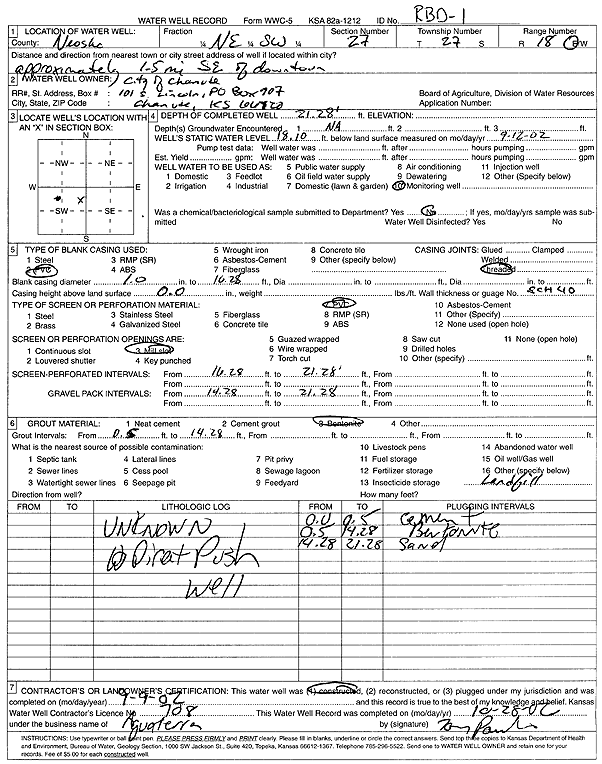 WATER WELL RECORD Form WWC-5 KSA 82a-1212 ID No. RBD-1
1 LOCATION OF WATER WELL: Fraction Section Number Township Number Range Number
County: Neosho ¼ NE ¼ SW ¼ 27 T 27 S R 18 E/W
Distance and direction from nearest town or city street address of well if located within city?
approximately 1.5 mi SE of downtown
2 WATER WELL OWNER: City of Chanute
RR#, St. Address, Box # : 101 S. Lincoln, PO Box 907 Board of Agriculture, Division of Water Resources
City, State, ZIP Code : Chanute, KS Application Number:
3 LOCATE WELL'S LOCATION WITH AN "X" IN SECTION BOX:
N
NW NE
W E
X
SW SE
S
4 DEPTH OF COMPLETED WELL 21.28' ft. ELEVATION:
Depth(s) Groundwater Encountered 1 NA ft. 2 ft. 3 ft.
WELL'S STATIC WATER LEVEL 18.10 ft. below land surface measured on mo/day/yr 9-12-02
Pump test data: Well water was ft. after hours pumping gpm
Est. Yield gpm: Well water was ft. after hours pumping gpm
WELL WATER TO BE USED AS: 5 Public water supply 8 Air conditioning 11 Injection well
1 Domestic 3 Feedlot 6 Oil field water supply 9 Dewatering 12 Other (Specify below)
2 Irrigation 4 Industrial 7 Domestic (lawn & garden) 10 Monitoring well
Was a chemical/bacteriological sample submitted to Department? Yes No ; If yes, mo/day/yrs sample was sub-
mitted Water Well Disinfected? Yes No
5 TYPE OF BLANK CASING USED: 5 Wrought iron 8 Concrete tile CASING JOINTS: Glued Clamped
1 Steel 3 RMP (SR) 6 Asbestos-Cement 9 Other (specify below) Welded
2 PVC 4 ABS 7 Fiberglass Threaded
Blank casing diameter 1.0 in. to 16.28 ft., Dia in. to ft., Dia in. to ft.
Casing height above land surface 0.0 in., weight lbs./ft. Wall thickness or guage No. SCH 40
TYPE OF SCREEN OR PERFORATION MATERIAL: 7 PVC 10 Asbestos-Cement
1 Steel 3 Stainless Steel 5 Fiberglass 8 RMP (SR) 11 Other (Specify)
2 Brass 4 Galvanized Steel 6 Concrete tile 9 ABS 12 None used (open hole)
SCREEN OR PERFORATION OPENINGS ARE: 5 Guazed wrapped 8 Saw cut 11 None (open hole)
1 Continuous slot 3 Mill slot 6 Wire wrapped 9 Drilled holes
2 Louvered shutter 4 Key punched 7 Torch cut 10 Other (specify) ft.
SCREEN-PERFORATED INTERVALS: From 16.28 ft. to 21.28' ft., From ft. to ft.
From ft. to ft., From ft. to ft.
GRAVEL PACK INTERVALS: From 14.28 ft. to 21.28 ft., From ft. to ft.
From ft. to ft., From ft. to ft.
6 GROUT MATERIAL: 1 Neat cement 2 Cement grout 3 Bentonite 4 Other
Grout Intervals: From 0.5 ft. to 14.28 ft., From ft. to ft., From ft. to ft.
What is the nearest source of possible contamination: 10 Livestock pens 14 Abandoned water well
1 Septic tank 4 Lateral lines 7 Pit privy 11 Fuel storage 15 Oil well/Gas well
2 Sewer lines 5 Cess pool 8 Sewage lagoon 12 Fertilizer storage 16 Other (specify below)
3 Watertight sewer lines 6 Seepage pit 9 Feedyard 13 Insecticide storage Landfill
Direction from well? How many feet?
FROM TO LITHOLOGIC LOG FROM TO PLUGGING INTERVALS
UNKNOWN 0.0 0.5 Cement
0.5 14.28 Bentonite
Direct Push 14.28 21.28 Sand
Well
7 CONTRACTOR'S OR LANDOWNER'S CERTIFICATION: This water well was (1) constructed, (2) reconstructed, or (3) plugged under my jurisdiction and was
completed on (mo/day/year) 9-9-02 and this record is true to the best of my knowledge and belief. Kansas
Water Well Contractor's Licence No. 708 This Water Well Record was completed on (mo/day/yr) 10-28-02
under the business name of Aquaterra by (signature)
INSTRUCTIONS: Use typewriter or ball point pen. PLEASE PRESS FIRMLY and PRINT clearly. Please fill in blanks, underline or circle the correct answers. Send top three copies to Kansas Department of Health
and Environment, Bureau of Water, Geology Section, 1000 SW Jackson St., Suite 420, Topeka, Kansas 66612-1367. Telephone 785-296-5522. Send one to WATER WELL OWNER and retain one for your
records. Fee of $5.00 for each constructed well.